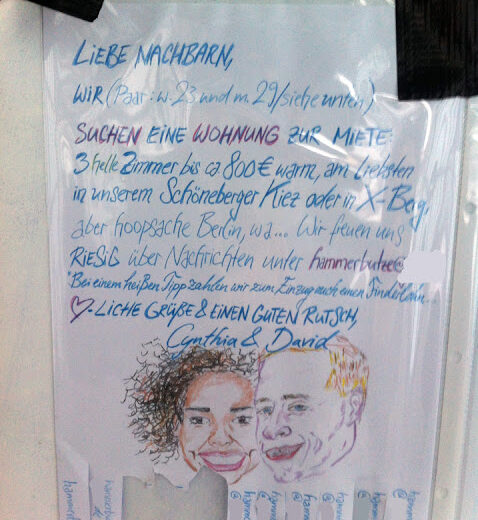 LIEBE NACHBARN,
WIR (Paar: w. 23 und m. 29/siehe unten)
SUCHEN EINE WOHNUNG ZUR MIETE:
3 helle Zimmer bis ca 800€ warm, am liebsten
in unserem Schöneberger Kiez oder in X-Berg,
aber hoopsache Berlin, wa... Wir freuen uns
RIESIG über Nachrichten unter hammerbutze@
*Bei einem heißen Tipp zahlen wir zum Einzug auch einen Finderlohn...
♡-LICHE GRÜßE & EINEN GUTEN RUTSCH,
Cynthia & David